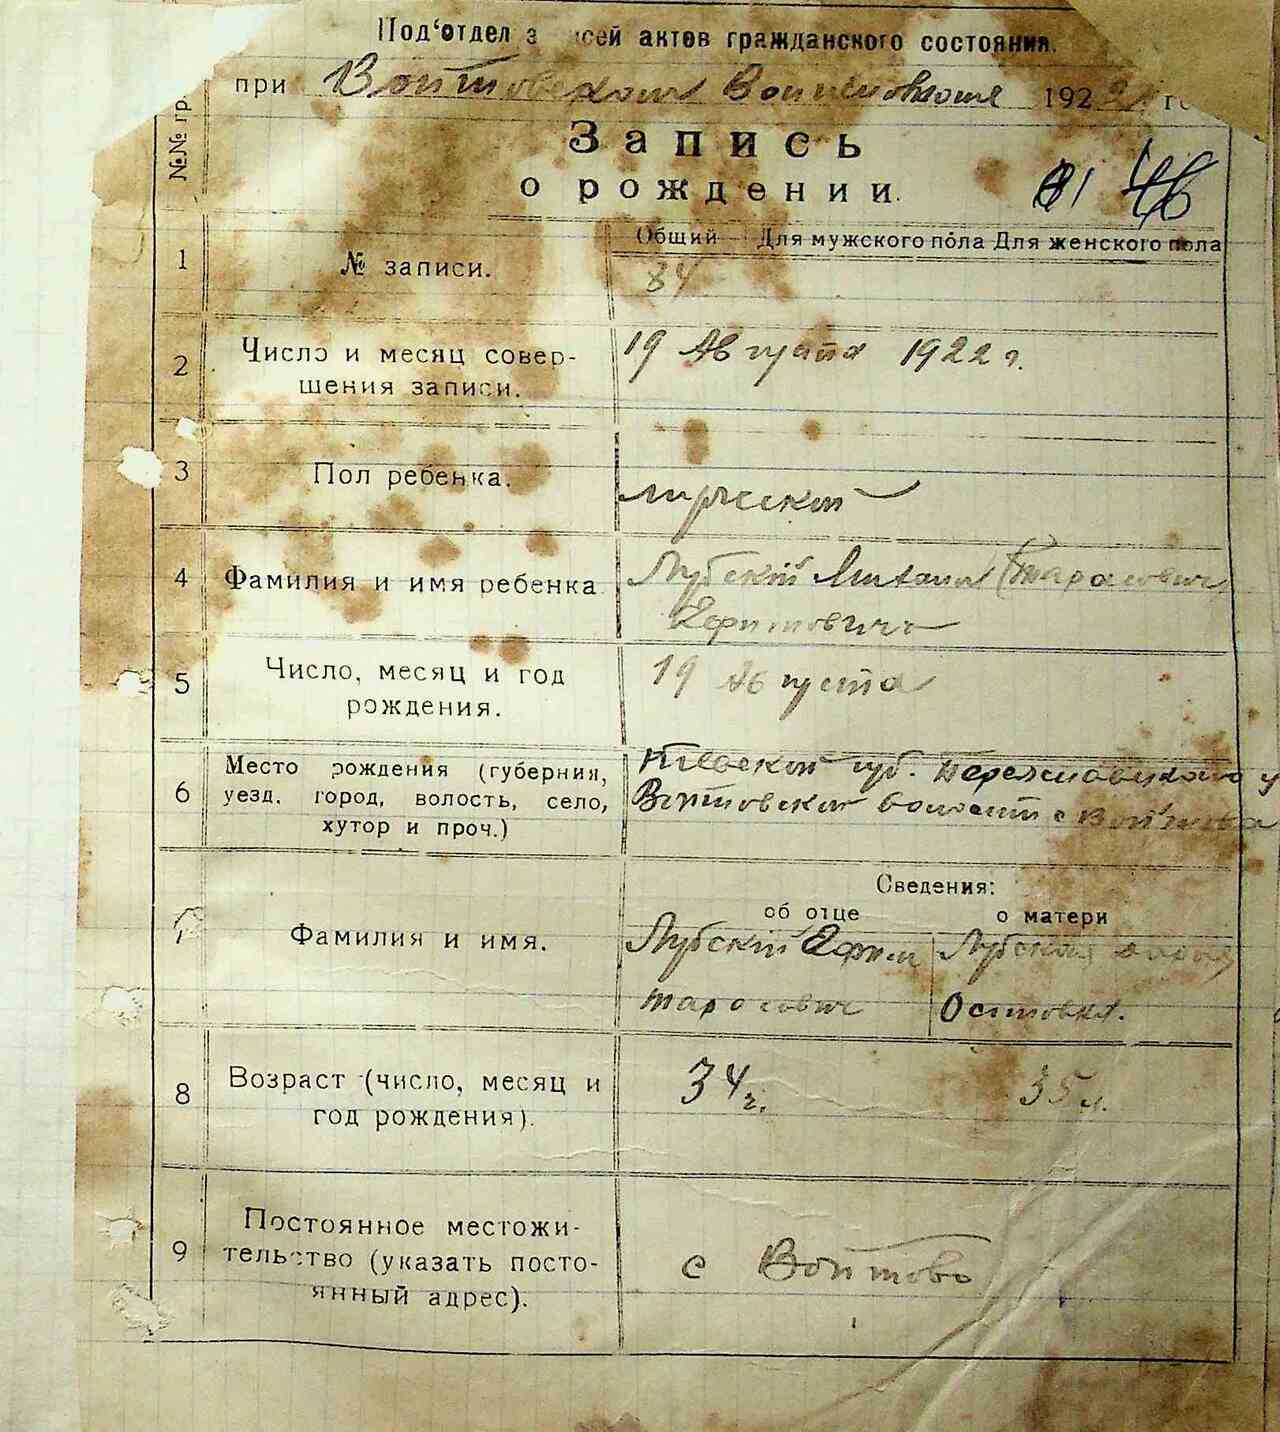 Под'отдел з сей актов гражданского состояния.
при Войтовском 192 г
№№ гр.
Запись
о рождении.
81 46
Общий Для мужского пола Для женского пола
1 № записи. 84
2 Число и месяц совер- 19 Августа 1922 г.
шения записи.
3 Пол ребенка. мужской
4 Фамилия и имя ребенка Лубский Тарасович
Ефимович
5 Число, месяц и год 19 Августа
рождения.
6 Место рождения (губерния, Киевской губ. Переяславского у
уезд, город, волость, село, Войтовской волости с Войтова
хутор и проч.)
Сведения:
об отце о матери
7 Фамилия и имя. Лубский Ефим Лубская
Тарасович Остаповна.
8 Возраст (число, месяц и 34 г. 35 л.
год рождения).
9 Постоянное местожи-
тельство (указать посто- с Войтово
янный адрес).